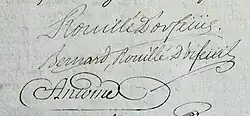 Rouillé D'orfeüil.
Bernard, Rouillé D'orfeuil
Antoine